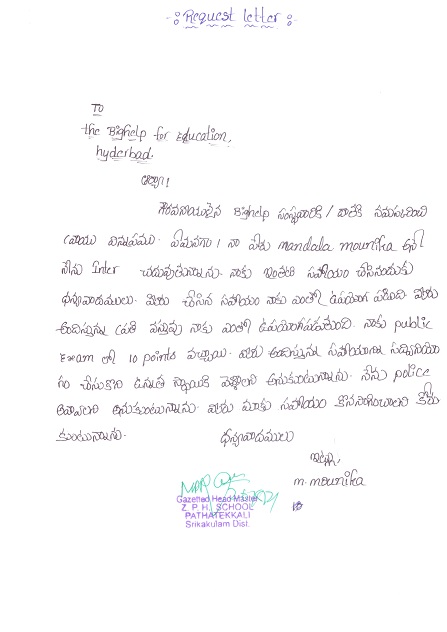 -: Request letter :-
To
the Bighelp for Education,
hyderbad.
అయ్యా!
గౌరవనీయులైన Bighelp సంస్థవారికి / దాతకి నమస్కరించి
వ్రాయు విన్నపము. ఏమనగా! నా పేరు mandala mounika అనే
నేను Inter చదువుతున్నాను. నాకు ఇంతటి సహాయం చేసినందుకు
ధన్యవాదములు. మీరు చేసిన సహాయం నాకు ఎంతో ఉపయోగ పడింది. మీరు
అందిస్తున్న ప్రతి వస్తువు నాకు ఎంతో ఉపయోగపడుతుంది. నాకు public
Exam లో 10 points వచ్చాయి. మీరు అందిస్తున్న సహాయాన్ని సద్వినియో
గం చేసుకొని ఉన్నత స్థాయికి వెళ్లాలని అనుకుంటున్నాను. నేను police
అవ్వాలని అనుకుంటున్నాను. మీరు మాకు సహాయం కొనసాగించాలని కోరు
కుంటున్నాను.
ధన్యవాదములు
ఇట్లు,
m. mounika
Gazetted Head Master
Z. P. H. SCHOOL
PATHATEKKALI
Srikakulam Dist.